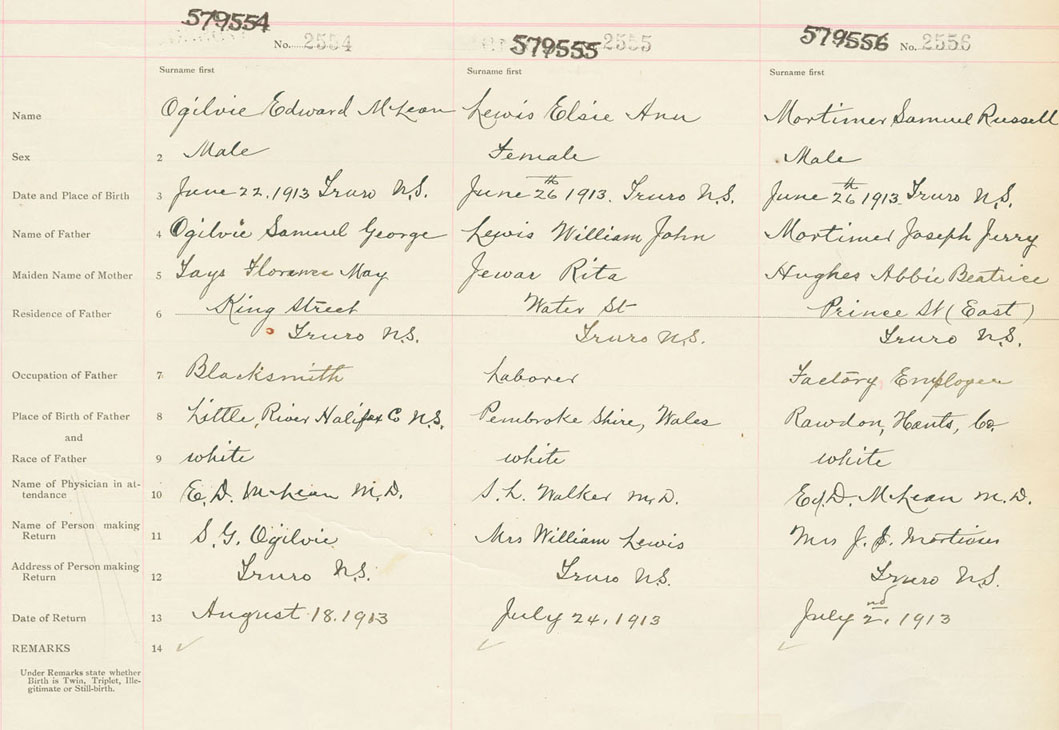 579554 No. 2554 579555 2555 579556 No. 2556
Surname first Surname first Surname first
Name Ogilvie Edward McLean Lewis Elsie Ann Mortimer Samuel Russell
Sex 2 Male Female Male
Date and Place of Birth 3 June 22. 1913 Truro N.S. June 26th 1913. Truro N.S. June 26th 1913. Truro N.S.
Name of Father 4 Ogilvie Samuel George Lewis William John Mortimer Joseph Jerry
Maiden Name of Mother 5 Florence May Jewar Rita Hughes Abbie Beatrice
Residence of Father 6 King Street Water St Prince St (East)
Truro N.S. Truro N.S. Truro N.S.
Occupation of Father 7 Blacksmith Laborer Factory Employee
Place of Birth of Father 8 Little River Halifax Co N.S. Pembroke Shire, Wales Rawdon, Hants, Co.
and
Race of Father 9 white white white
Name of Physician in at-
tendance 10 E. D. McLean M.D. S. L. Walker M.D. E. D. McLean M.D.
Name of Person making
Return 11 S. G. Ogilvie Mrs William Lewis Mrs J. J. Mortimer
Address of Person making
Return 12 Truro N.S. Truro N.S. Truro N.S.
Date of Return 13 August 18. 1913 July 24, 1913 July 2nd, 1913
REMARKS 14
Under Remarks state whether
Birth is Twin, Triplet, Ille-
gitimate or Still-birth.